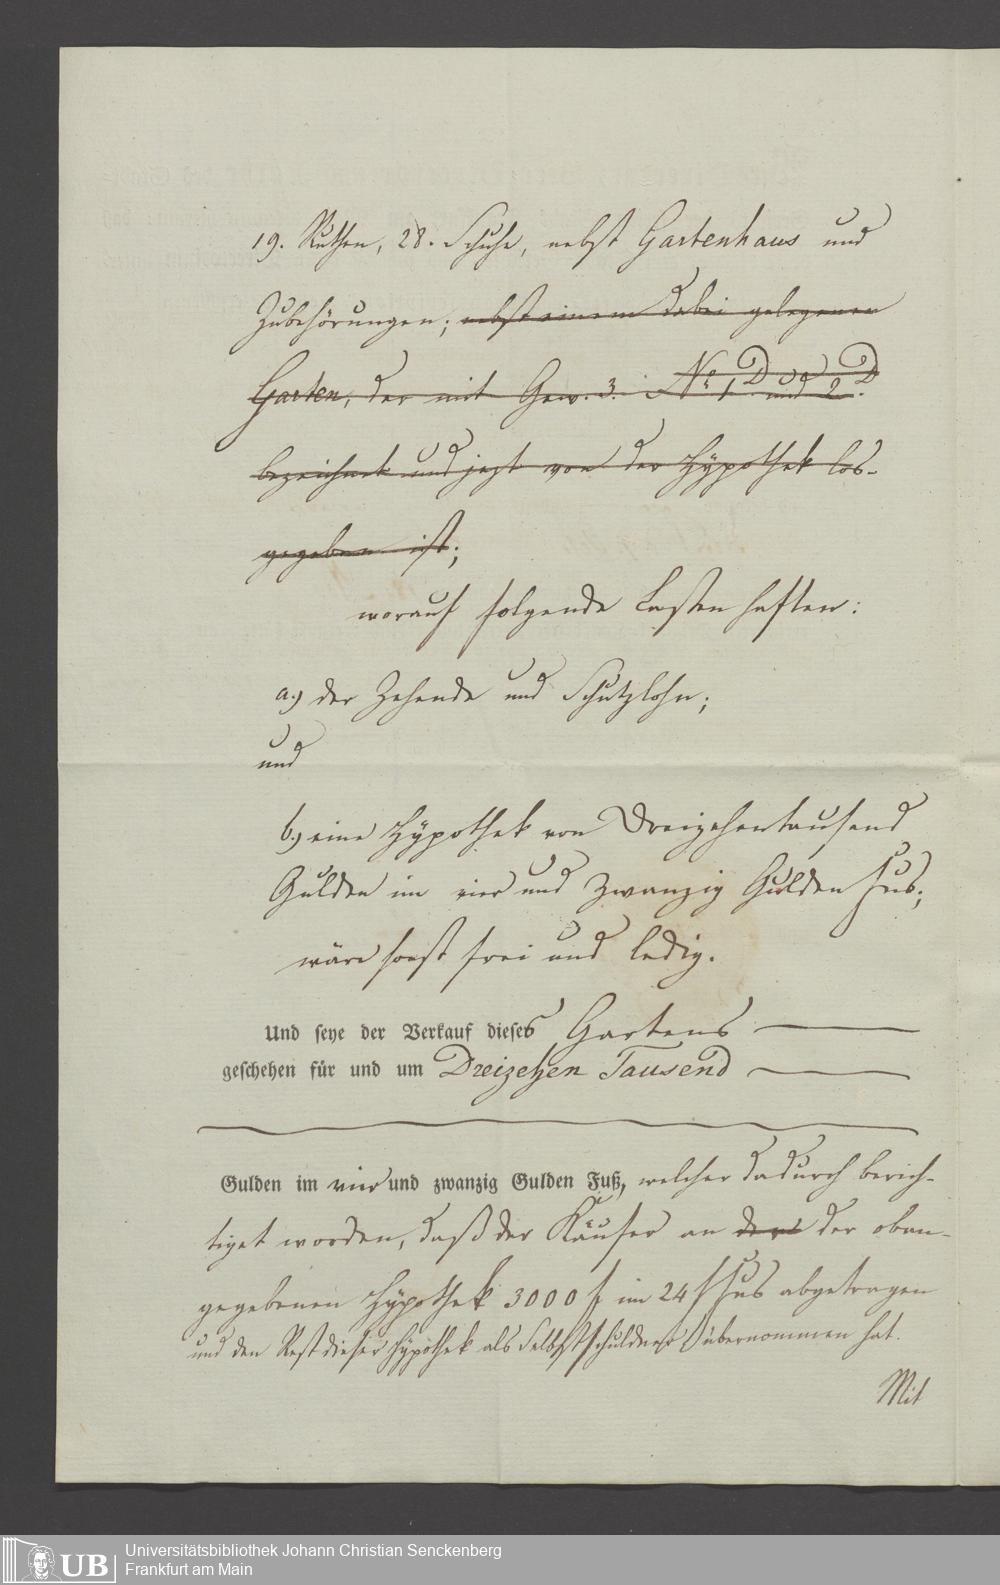 19. Ruthen, 28. Schuhe, nebst Gartenhaus und
Zubehörungen; nebst einem dabei gelegenen
Garten, der mit Gew. 3. No. 1 D und 2. D
bezeichnet und jezt von der Hÿpothek los-
gegeben ist;
worauf folgende Lasten haften:
a.) der Zehende und Schutzlohn;
und
b.) eine Hÿpothek von Dreizehentausend
Gulden im vier und zwanzig Gulden Fus;
wäre sonst frei und ledig.
Und seye der Verkauf dieses Gartens
geschehen für und um Dreizehen Tausend
Gulden im vier und zwanzig Gulden Fuß, welcher dadurch berich-
tiget worden, daß der Käufer an der der oban-
gegebenen Hÿpothek 3000 f im 24 f Fus abgetragen
und den Rest dieser Hÿpothek als Selbstschuldner übernommen hat.
Mit
UB
Universitätsbibliothek Johann Christian Senckenberg
Frankfurt am Main